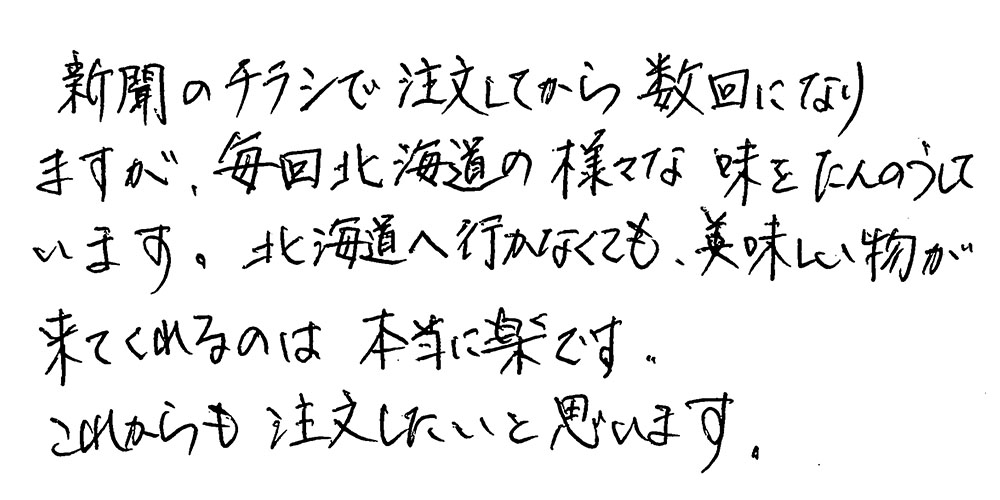 新聞のチラシで注文してから数回になり
ますが、毎回北海道の様々な味をたんのうして
います。北海道へ行かなくても、美味しい物が
来てくれるのは本当に楽です。
これからも注文したいと思います。